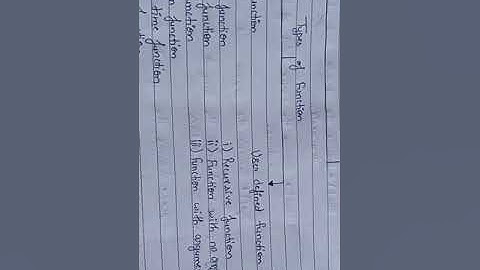 Types of Function
unction
User defined function
function
i) Recursive function
function
ii) Function with no arg
unction
iii) Function with argume
n function
time function